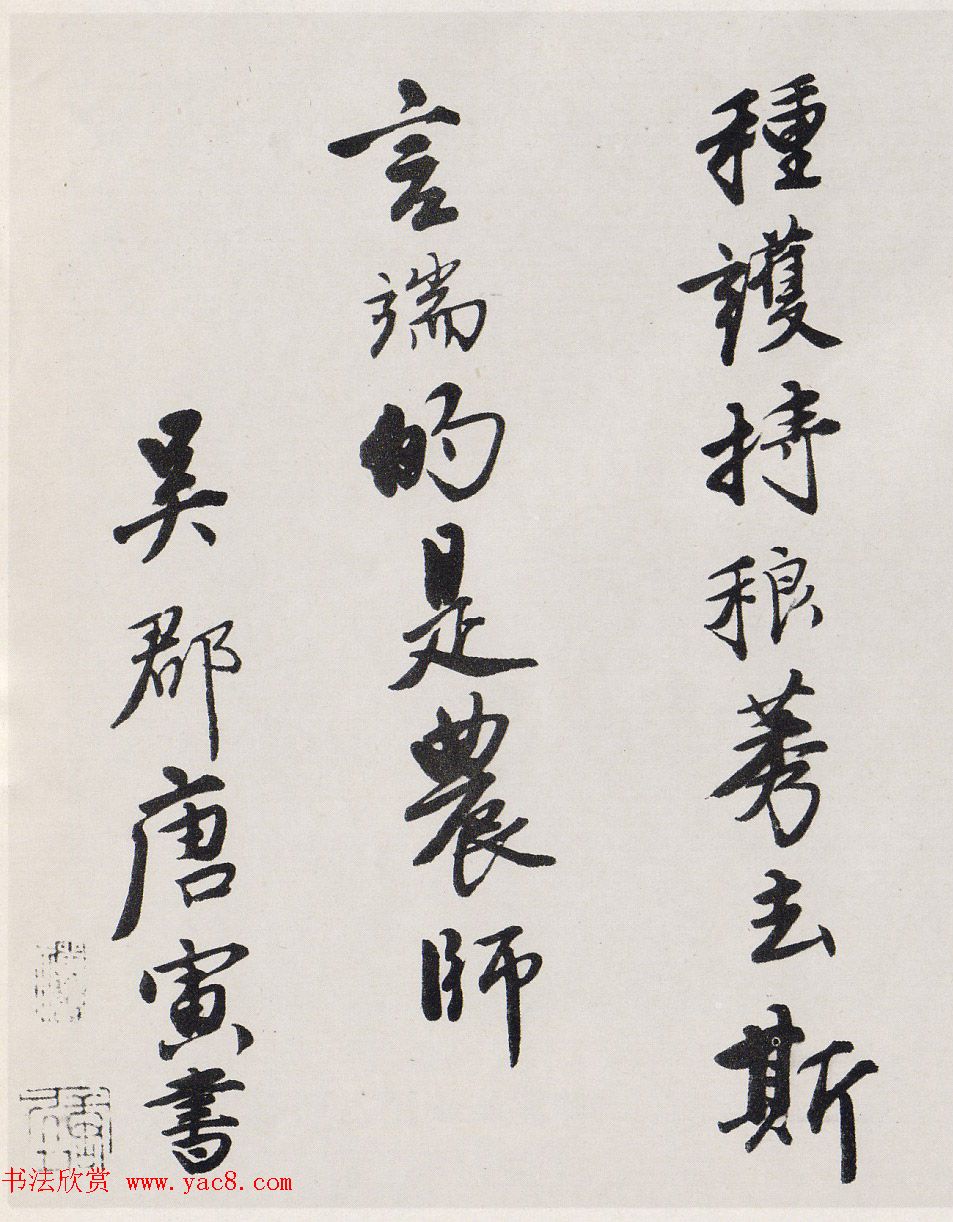 種護持稂莠去斯
言端的是農師
吳郡唐寅書
书法欣赏 www.yac8.com